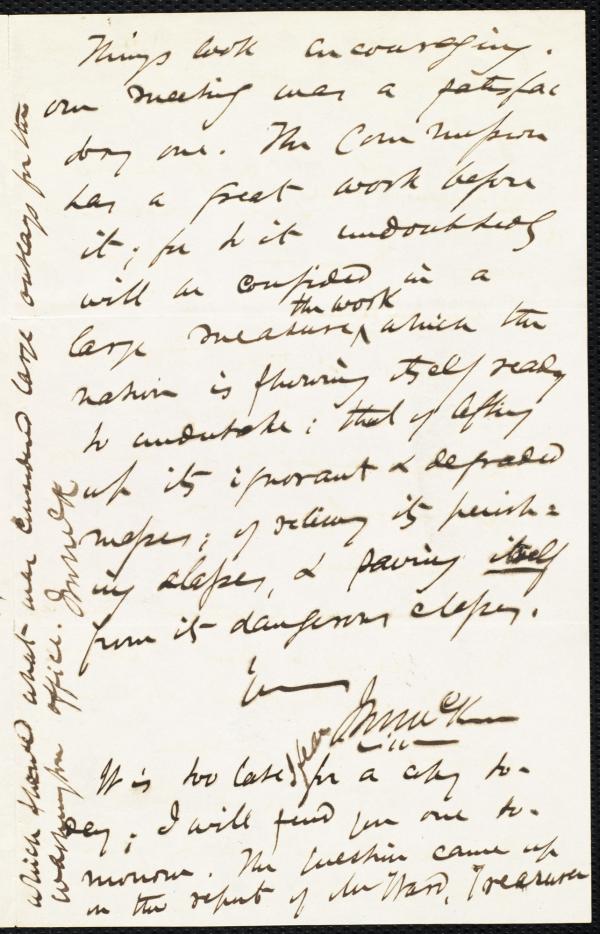 Things look encouraging.
our meeting was a satisfac
tory one. The Commission
has a great work before
it; for to it undoubtedly
will be confided in a
the work
large measure ^ which the
nation is showing itself ready
to undertake; that of lifting
up its ignorant & degraded
masses; of relieving its perish=
ing classes, & saving itself
from its dangerous classes.
Yours
J M McKim
It is too late I fear for a copy to-
day; I will send you one to-
morrow. The question came up
in the report of Mr Ward, Treasurer
which showed what was considered large outlays for the
Washington office. J M McK